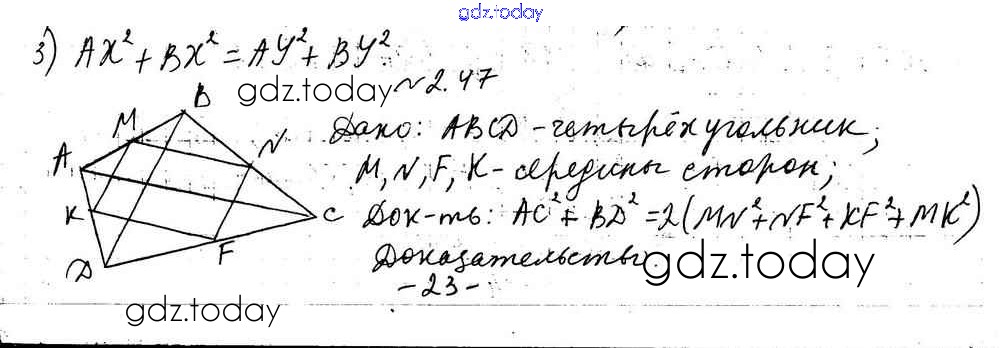 gdz.today
3) AX² + BX² = AY² + BY²
gdz.today
~ 2.47
B
M
N
A
K
C
D
F
Дано: ABCD - четырёхугольник;
M, N, F, K - середины сторон;
Док-ть: AC² + BD² = 2(MN² + NF² + KF² + MK²)
Доказательство
gdz.today
- 23 -
gdz.today